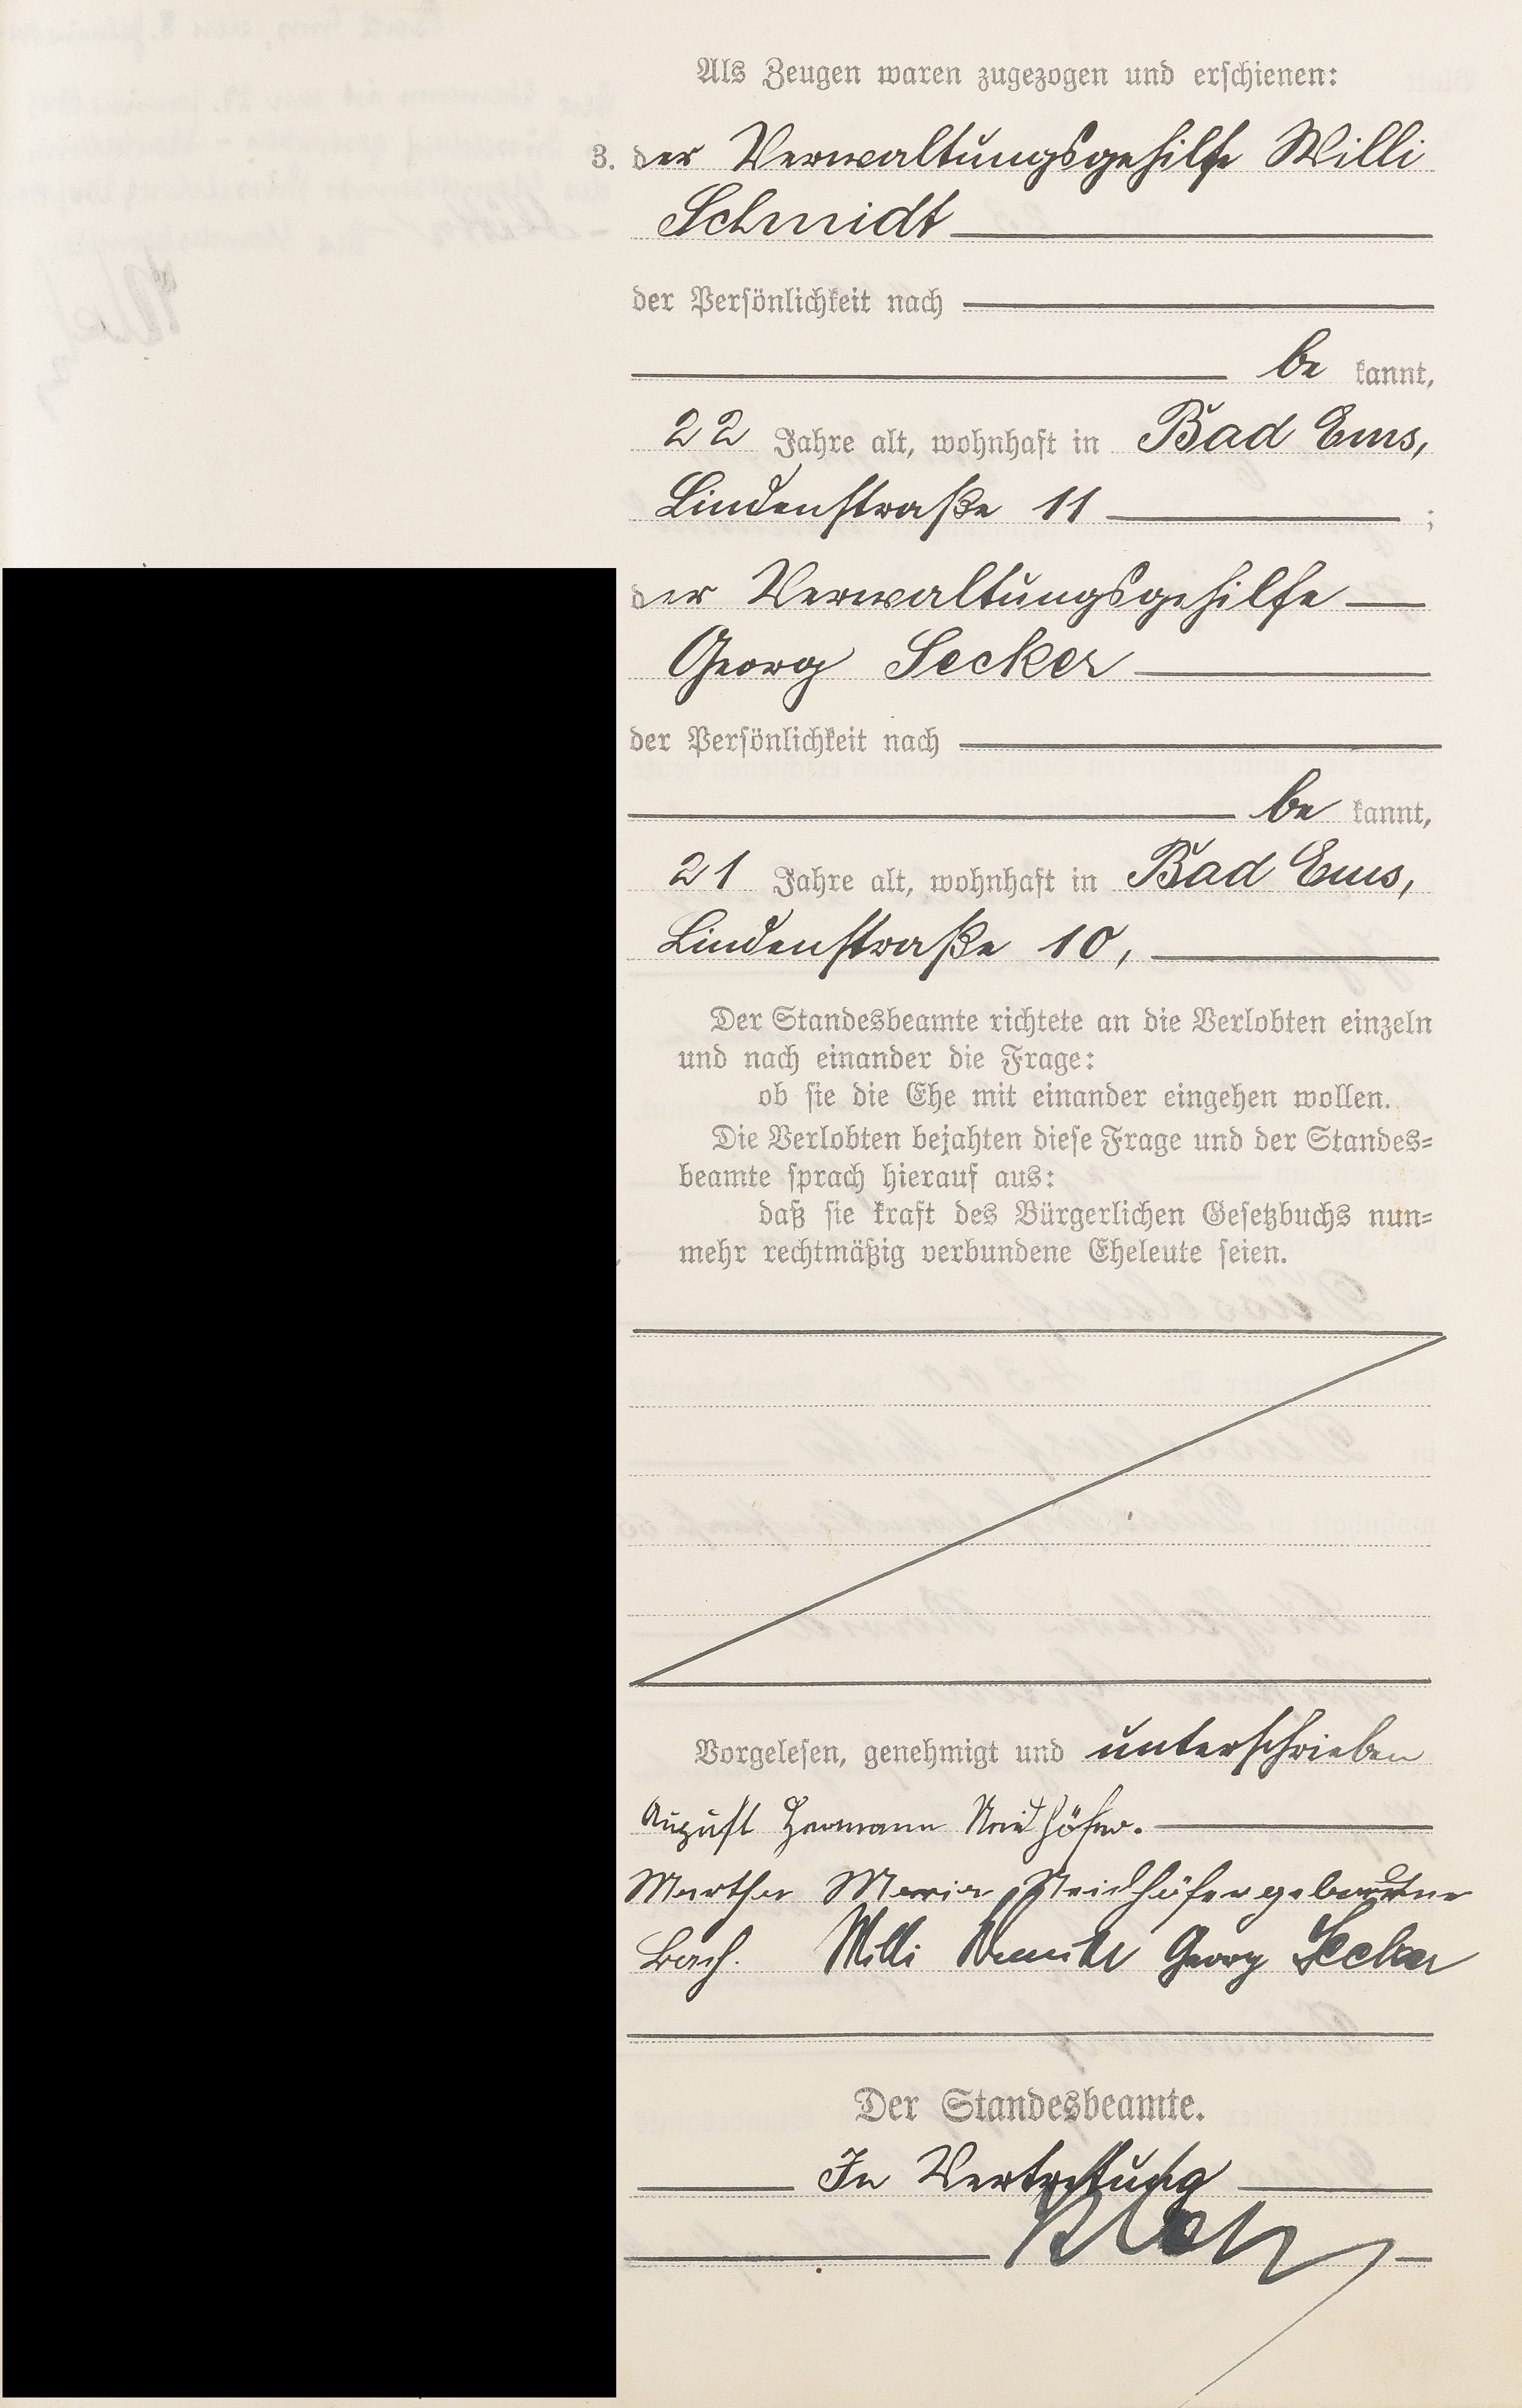 Als Zeugen waren zugezogen und erschienen:
3. der Verwaltungsgehilfe Willi
Schmidt
der Persönlichkeit nach
be kannt,
22 Jahre alt, wohnhaft in Bad Ems,
Lindenstraße 11 ;
der Verwaltungsgehilfe
Georg Secker
der Persönlichkeit nach
be kannt,
21 Jahre alt, wohnhaft in Bad Ems,
Lindenstraße 10,
Der Standesbeamte richtete an die Verlobten einzeln
und nach einander die Frage:
ob sie die Ehe mit einander eingehen wollen.
Die Verlobten bejahten diese Frage und der Standes=
beamte sprach hierauf aus:
daß sie kraft des Bürgerlichen Gesetzbuchs nun=
mehr rechtmäßig verbundene Eheleute seien.
Vorgelesen, genehmigt und unterschrieben
August Hermann Neidhöfer.
Martha Maria Neidhöfer geborene
Bach. Willi Schmidt Georg Secker
Der Standesbeamte.
In Vertretung